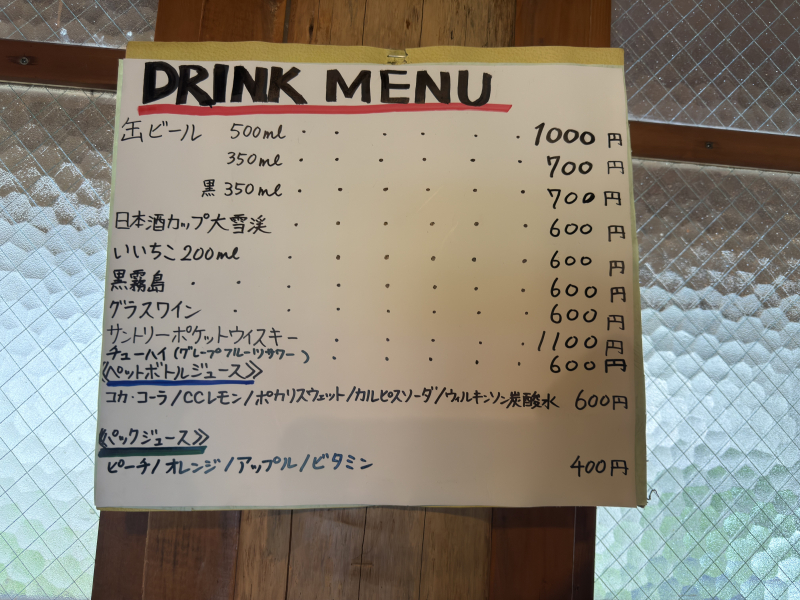 DRINK MENU
缶ビール 500ml ・・・・・・ 1000円
350ml ・・・・・・ 700円
黒 350ml ・・・・・・ 700円
日本酒カップ大雪渓 ・・・・・・ 600円
いいちこ 200ml ・・・・・・ 600円
黒霧島 ・・・・・・・・ 600円
グラスワイン ・・・・・・・ 600円
サントリーポケットウイスキー ・・・・・ 1100円
チューハイ (グレープフルーツサワー) ・・・・・ 600円
《ペットボトルジュース》
コカ・コーラ/CCレモン/ポカリスウェット/カルピスソーダ/ウィルキンソン炭酸水 600円
《パックジュース》
ピーチ/オレンジ/アップル/ビタミン 400円